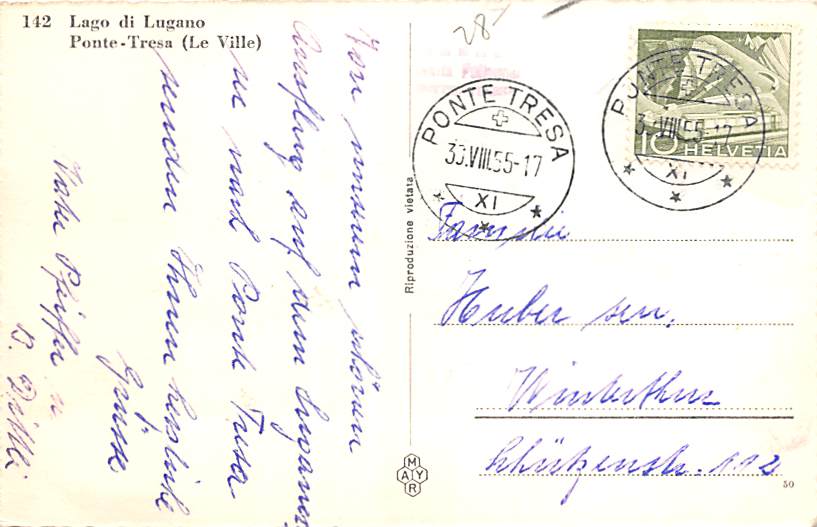 142 Lago di Lugano
Ponte-Tresa (Le Ville)
Von unserem schönen
Ausflug auf dem Lugano
nach Ponte Tresa
senden Ihnen herzliche
Grüsse
Pfeiffer
28-
PONTE TRESA
30.VIII.55-17
XI
PONTE TRESA
3.VIII.55-17
XI
10 HELVETIA
Riproduzione vietata
Familie
Huber sen.
Winterthur
Schützenstr. 112
MAYR
50